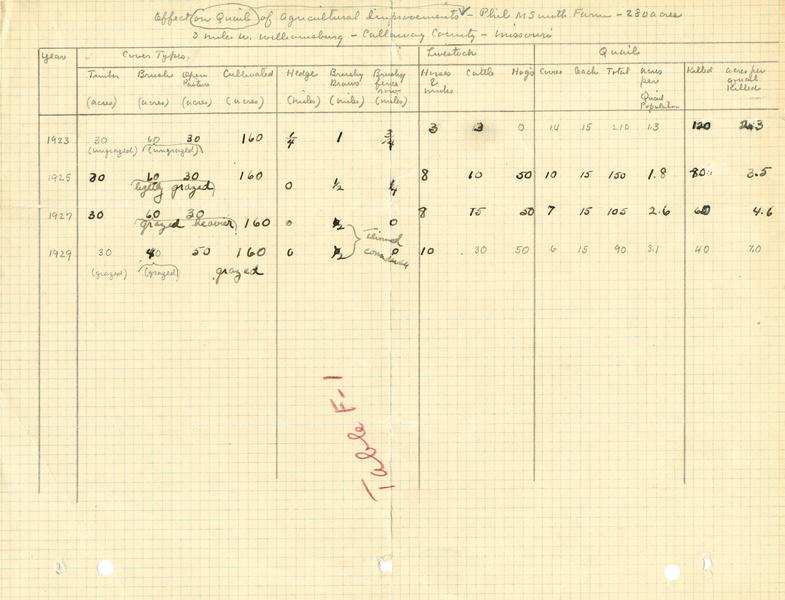 Effect on Quail of Agricultural Improvements - Phil M Smith Farm - 280 acres
3 miles W. Williamsburg - Callaway County - Missouri
Year Cover Types, Livestock Quail
Timber Brush Open Pasture Cultivated Hedge Brushy Draws Brushy fence rows Horses & mules Cattle Hogs Coveys Each Total acres per Quail Population Killed acres per quail killed
(acres) (acres) (acres) (acres) (miles) (miles) (miles)
1923 30 60 30 160 1/4 1 3/4 3 3 0 14 15 210 1.3 120 2.3
(ungrazed) (ungrazed)
1925 30 60 30 160 0 1/2 1/4 8 10 50 10 15 150 1.8 80 3.5
lightly grazed
1927 30 60 30 160 0 1/2 0 8 15 50 7 15 105 2.6 60 4.6
grazed heavier
1929 30 40 50 160 0 1/2 0 10 30 50 6 15 90 3.1 40 7.0
(grazed) (grazed) grazed
Table F-1